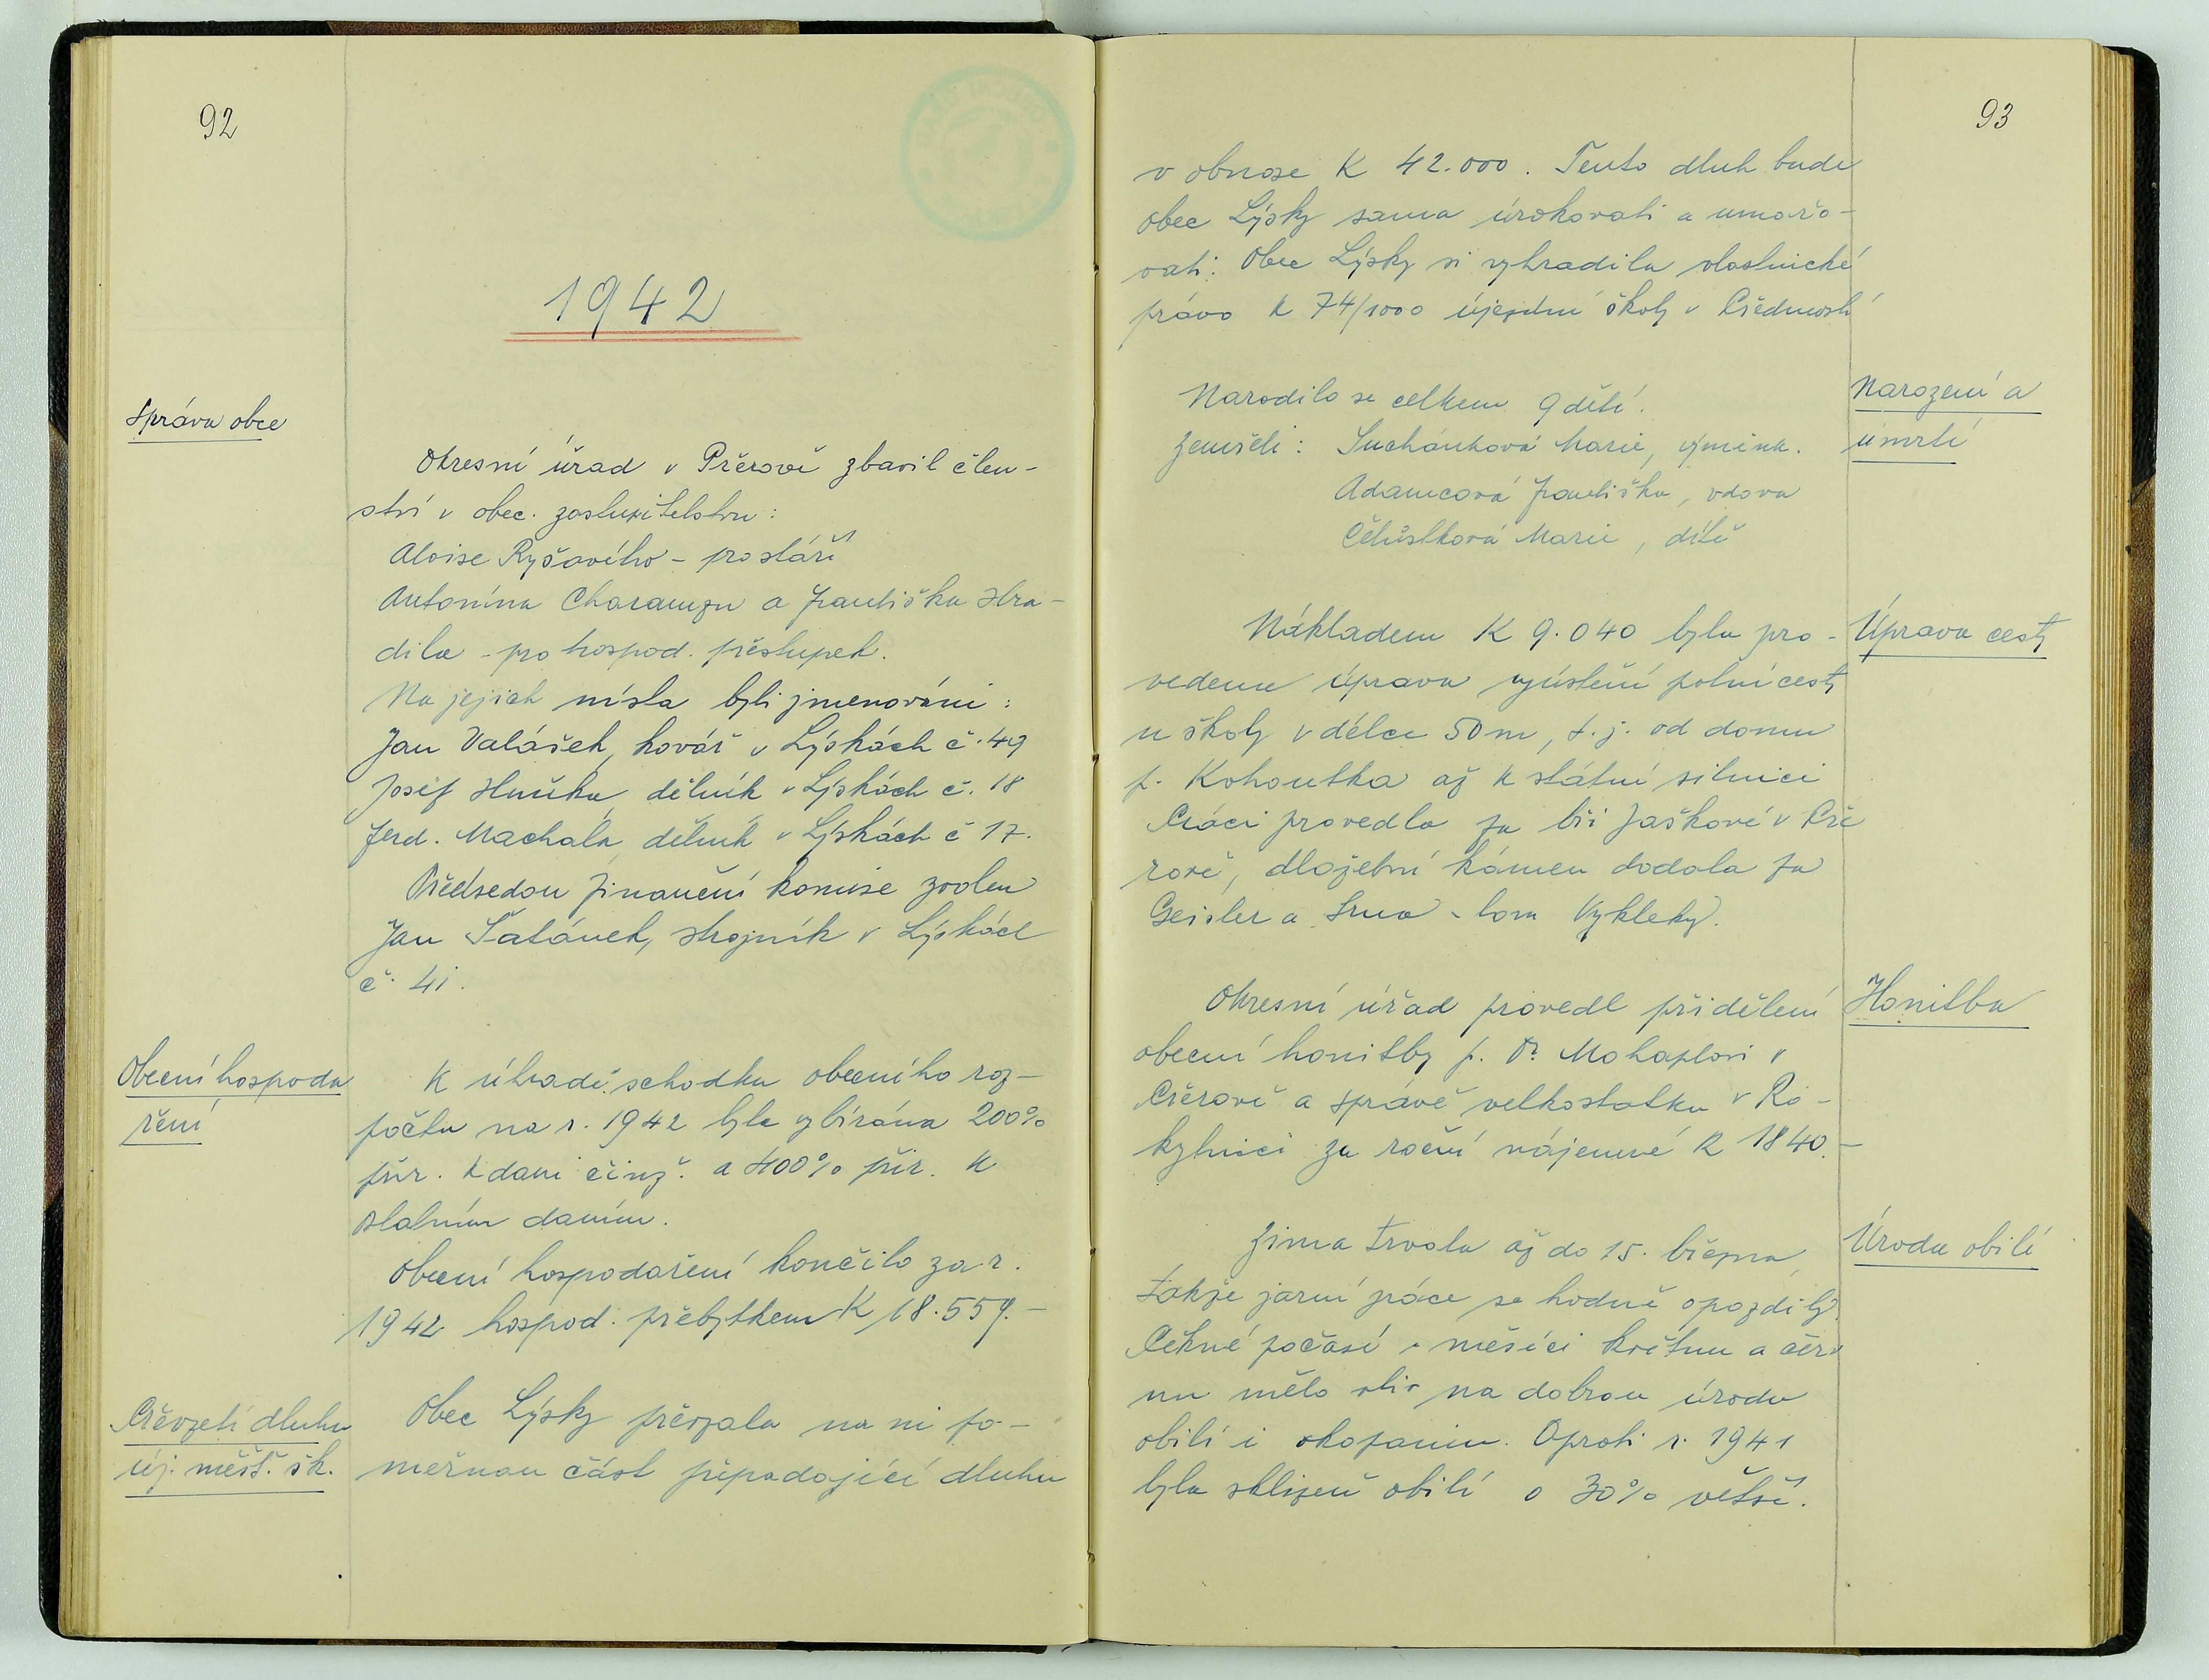 92
1942
Správa obce
Okresní úřad v Přerově zbavil člen-
ství v obec. zastupitelstvu:
Aloise Ryšavého - pro stáří
Antonína Charamzu a Františka Hra-
dila - pro hospod. přestupek.
Na jejich místa byli jmenováni:
Jan Valášek, kovář v Lýskách č. 49
Josif Hnilka, dělník v Lýskách č. 18
Ferd. Machala, dělník v Lýskách č 17.
Předsedou finanční komise zvolen
Jan Šatánek, strojník v Lýskách
č. 41.
Obecní hospoda
ření
K úhradě schodku obecního roz-
počtu na r. 1942 byla vybírána 200%
přir. k dani činž. a 400% přir. k
ostatním daním.
Obecní hospodaření končilo za r.
1942 hospod. přebytkem K 18.559.-
Převzetí dluhu
új. měšť. šk.
Obec Lýsky převzala na ni po-
měrnou část připadající dluhu
93
v obnose K 42.000. Tento dluh bude
obec Lýsky sama úrokovati a umořo-
vati. Obec Lýsky si vyhradila vlastnické
právo k 74/1000 újezdní školy v Předmostí
Narození a
úmrtí
Narodilo se celkem 9 dětí.
Zemřeli: Suchánková Marie, výměnk.
Adamcová Františka, vdova
Čelůstková Marie, dítě
Úprava cesty
Nákladem K 9.040 byla pro-
vedena úprava vyústění polní cesty
u školy v délce 50 m, t. j. od domu
p. Kohoutka až k státní silnici
Práci provedla fa bři Jaškové v Pře
rově, dlažební kámen dodala fa
Geisler a Srna - lom Výkleky.
Honitba
Okresní úřad provedl přidělení
obecní honitby p. Dr. Mohaplovi v
Přerově a správě velkostatku v Ro-
kytnici za roční nájemné K 1840.-
Úroda obilí
Zima trvala až do 15. března,
takže jarní práce se hodně opozdily.
Pěkné počasí v měsíci květnu a červ
nu mělo vliv na dobrou úrodu
obilí i okopanin. Oproti r. 1941
byla sklizeň obilí o 30% větší.